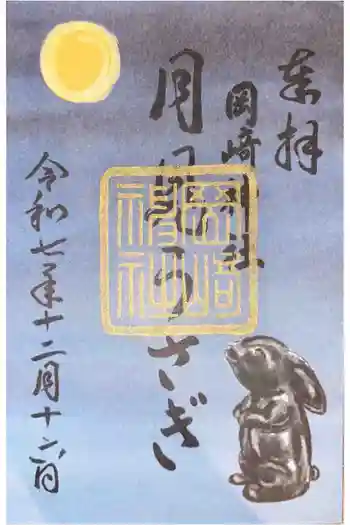 奉拝
岡崎神社
月 うさぎ
岡崎神社
令和七年十二月十六日